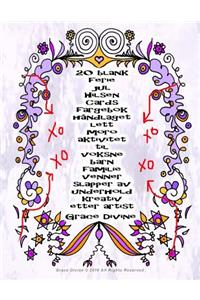 20 blank
Ferie
jul
Hilsen
Cards
Fargebok
Håndlaget
lett
moro
aktivitet
til
voksne
barn
Familie
venner
slapper av
Underhold
kreativ
etter artist
Grace Divine
XO
XO
XO
XO
Grace Divine © 2016 All Rights Reserved